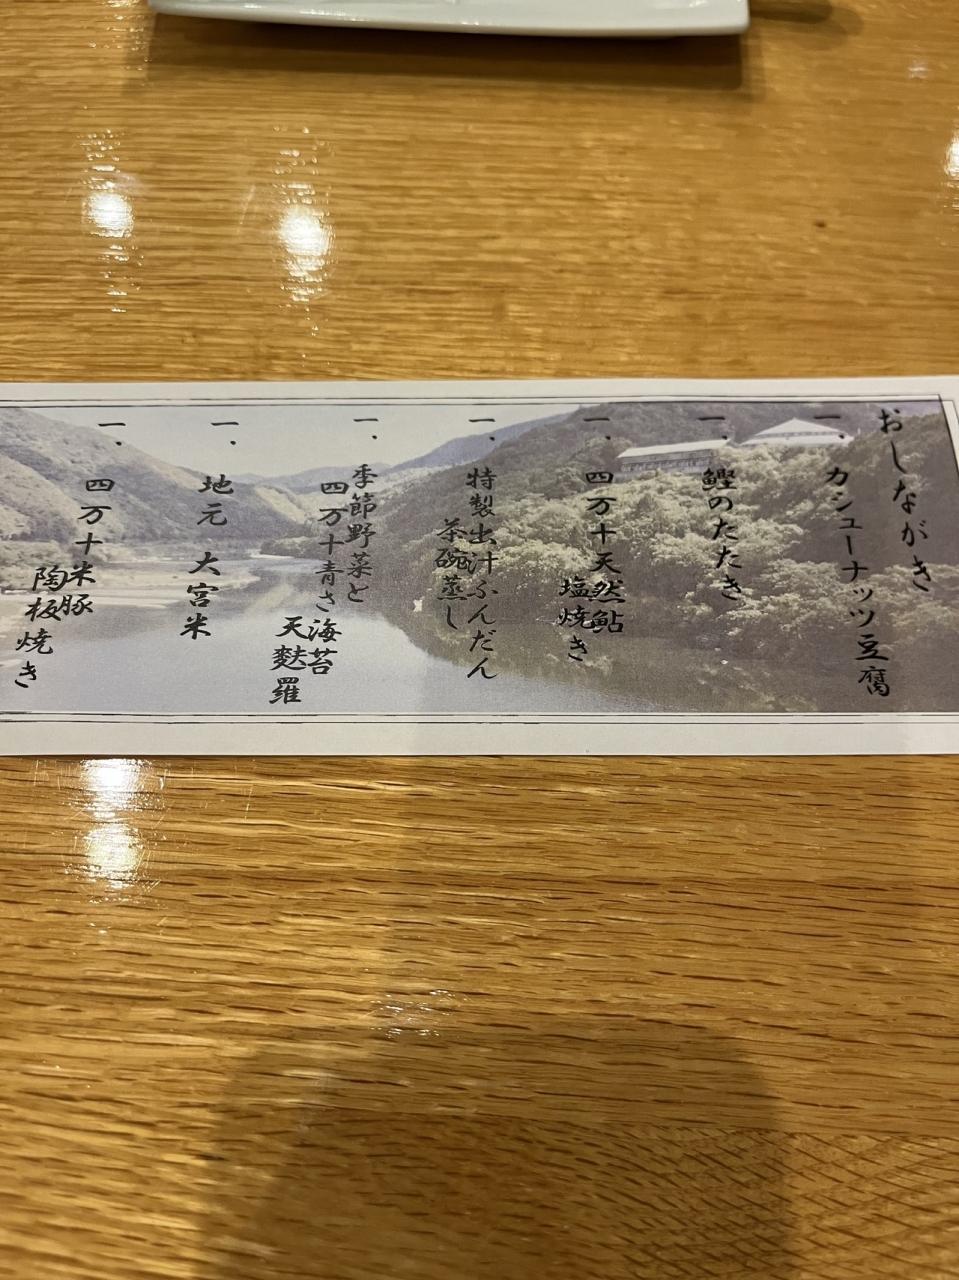 おしながき
一、カシューナッツ豆腐
一、鰹のたたき
一、四万十天然鮎
塩焼き
一、特製出汁ふんだん
茶碗蒸し
一、季節野菜と
四万十青さ海苔
天麩羅
一、地元 大宮米
一、四万十米豚
陶板焼き